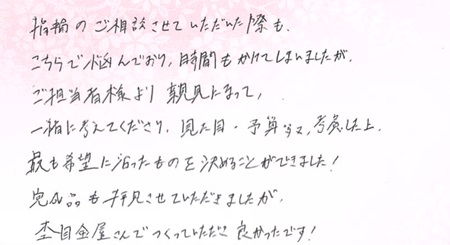 指輪のご相談させていただいた際も、
こちらで悩んでおり、時間もかけてしまいましたが、
ご担当者様より親身になって、
一緒に考えてくださり、見た目・予算等々、考慮した上、
最も希望に沿ったものを決めることができました!
完成品も拝見させていただきましたが、
杢目金屋さんでつくっていただき良かったです!